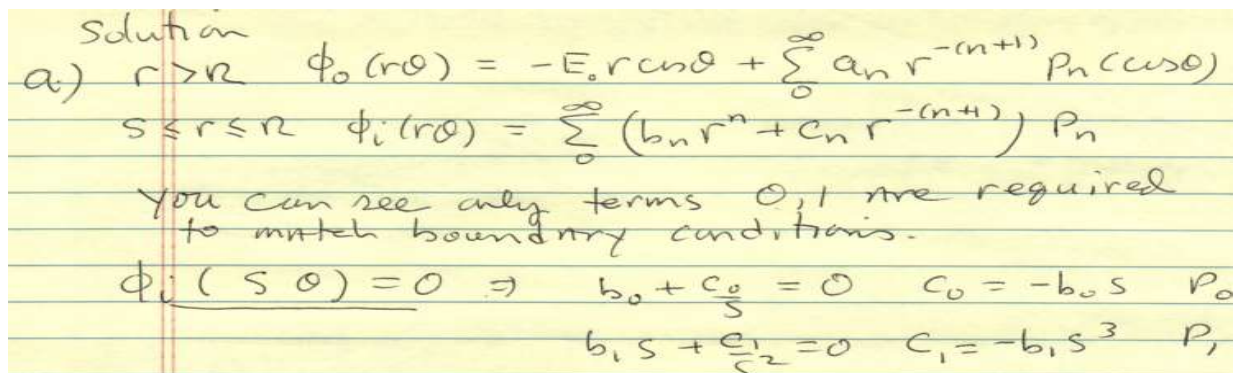 Solution
a.) r > R ϕ₀(rθ) = -E₀ r cosθ + Σ₀^∞ aₙ r^-(n+1) Pₙ(cosθ)
s ≤ r ≤ R ϕᵢ(rθ) = Σ₀^∞ (bₙ rⁿ + cₙ r^-(n+1)) Pₙ
You can see only terms 0,1 are required
to match boundary conditions.
ϕᵢ(s θ) = 0 ⇒ b₀ + c₀/s = 0 c₀ = -b₀ s P₀
b₁ s + c₁/s² = 0 c₁ = -b₁ s³ P₁